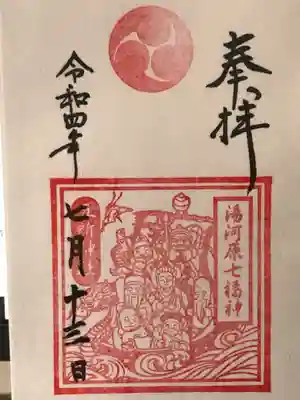 奉拝
湯河原七福神
令和四年
七月十三日